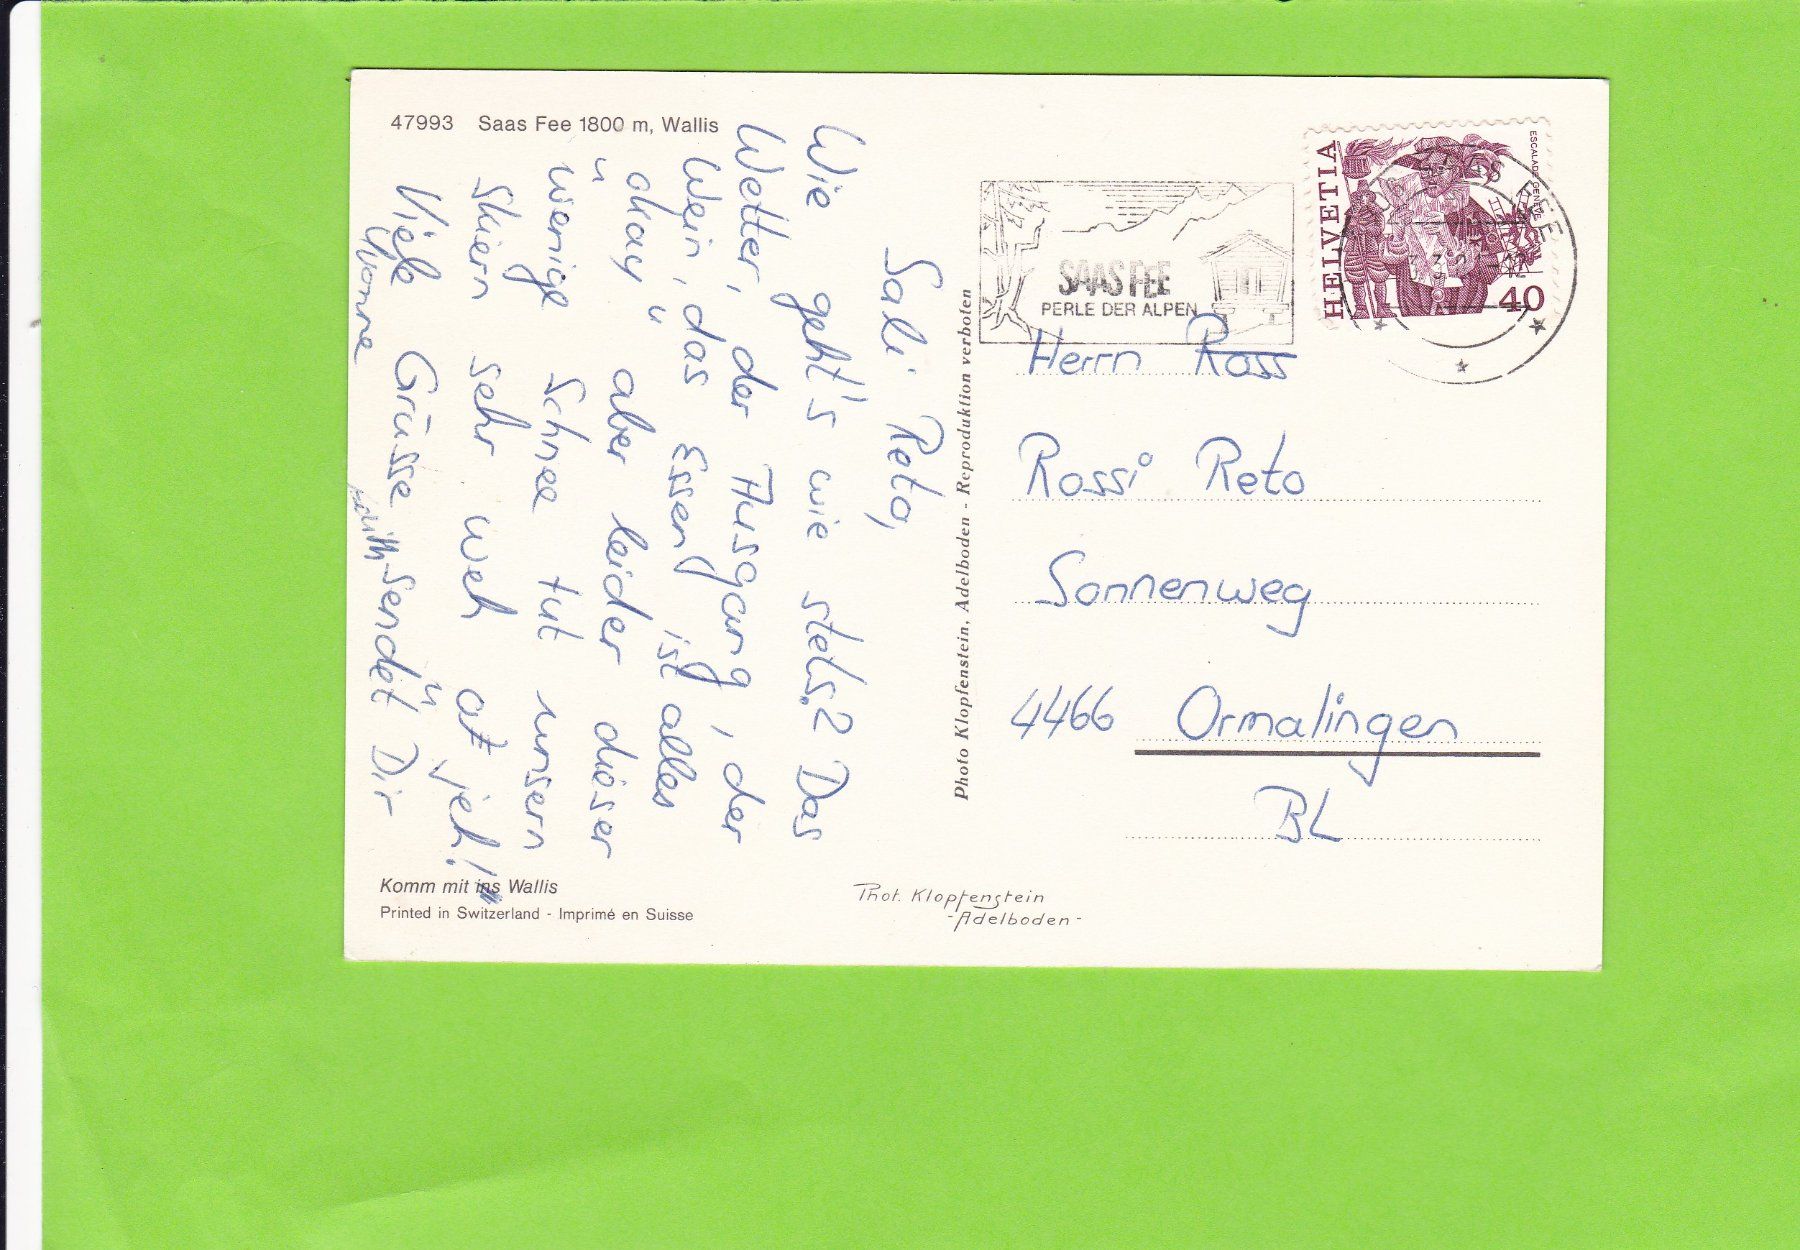 47993 Saas Fee 1800 m, Wallis
Sali Reto,
Wie geht's wie stets? Das
Wetter, der Ausgang, der
Wein, das Essen ist alles
"okay" aber leider dieser
wenige Schnee tut unsern
Skiern sehr weh "ojeh!"
Viele Grüsse sendet Dir
Yvonne
Komm mit ins Wallis
Printed in Switzerland - Imprimé en Suisse
Photo Klopfenstein, Adelboden - Reproduktion verboten
Phot. Klopfenstein
-Adelboden-
SAAS FEE
PERLE DER ALPEN
HELVETIA
ESCALADE GENÈVE
40
Herrn Ross
Rossi Reto
Sonnenweg
4466 Ormalingen
BL